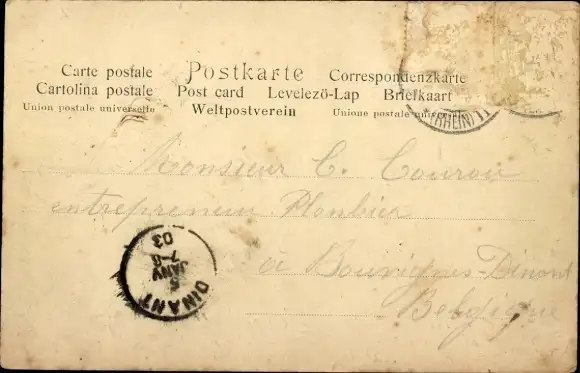 Carte postale Postkarte Correspondenzkarte
Cartolina postale Post card Levelezö-Lap Briefkaart
Union postale universelle Weltpostverein Unione postale universale
(RHEIN) 1
Monsieur C.
entrepreneur Plombier
à Bouvignes-Dinant
Belgique
DINANT
5
JANV
7-8
03